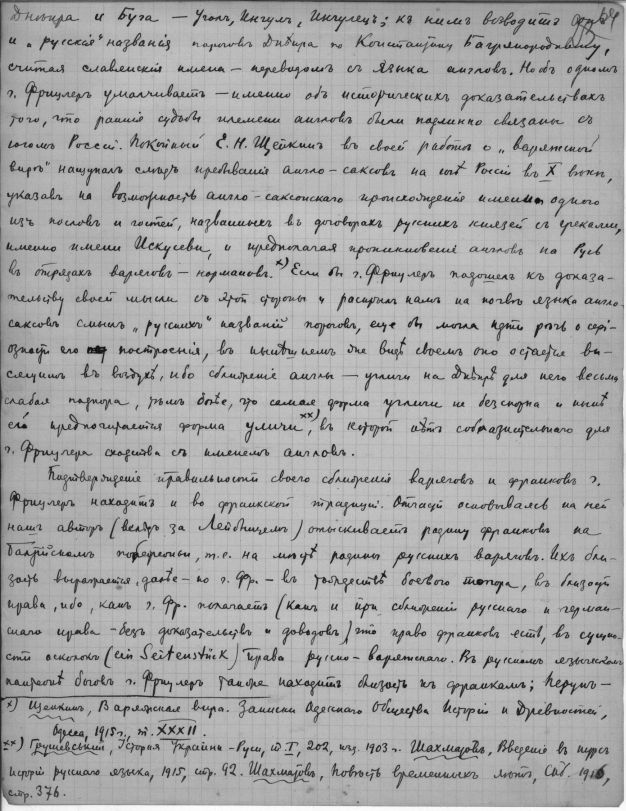 Днѣпра и Буга — Уголъ, Ингулъ, Ингулецъ; къ нимъ возводитъ онъ
и „русскія" названія пороговъ Днѣпра по Константину Багрянородному,
считая славянскія имена — переводомъ съ языка англовъ. Но объ одномъ
г. Фрицлеръ умалчиваетъ — именно объ историческихъ доказательствахъ
того, что раннія судьбы племени англовъ были подлинно связаны съ
югомъ Россіи. Покойный Е. Н. Щепкинъ въ своей работѣ о „Варяжской
вирѣ" нащупалъ слѣдъ пребыванія англо-саксовъ на югѣ Россіи въ X вѣкѣ,
указавъ на возможность англо-саксонскаго происхожденія имени одного
изъ пословъ и гостей, названныхъ въ договорахъ русскихъ князей съ греками,
именно имени Искусеви, и предполагая проникновеніе англовъ на Русь
въ отрядахъ варяговъ — норманновъ. х) Если бы г. Фрицлеръ подошелъ къ доказа-
тельству своей мысли съ этой стороны и раскрылъ намъ на почвѣ языка англо-
саксовъ смыслъ „русскихъ" названій пороговъ, еще бы могла идти рѣчь о серь-
озности его построенія, въ нынѣшнемъ же видѣ своемъ оно остается ви-
сящимъ въ воздухѣ, ибо сближеніе англы — угличи на Днѣпрѣ для него весьма
слабая подпора, тѣмъ болѣе, что самая форма угличи не безспорна и нынѣ
ей предпочитается форма уличи хх), въ которой нѣтъ соблазнительнаго для
г. Фрицлера сходства съ именемъ англовъ.
Подтвержденіе правильности своего сближенія варяговъ и франковъ г.
Фрицлеръ находитъ и во франкской традиціи. Отчасти основываясь на ней
нашъ авторъ (вслѣдъ за Лейбницемъ) отыскиваетъ родину франковъ на
Балтійскомъ побережьи, т.е. на мѣстѣ родины русскихъ варяговъ. Ихъ бли-
зость выражается, далѣе — по г. Фр. — въ тождествѣ боевого топора, въ близости
права, ибо, какъ г. Фр. полагаетъ (какъ и при сближеніи русскаго и герман-
скаго права — безъ доказательствъ и доводовъ) что право франковъ есть, въ сущно-
сти осколокъ (ein Seitenstück) права русско-варяжскаго. Въ русскомъ языческомъ
пантеонѣ боговъ г. Фрицлеръ также находитъ близость къ франкамъ; Перунъ —
х) Щепкинъ, Варяжская вира. Записки Одесскаго Общества Исторіи и Древностей,
Одесса, 1915 г., т. XXXII.
хх) Грушевський, Історія України-Руси, т. I, 202, изд. 1903 г. Шахматовъ, Введеніе въ курсъ
исторіи русскаго языка, 1915, стр. 92. Шахматовъ, Повѣсть временныхъ лѣтъ, Спб. 1916,
стр. 376.